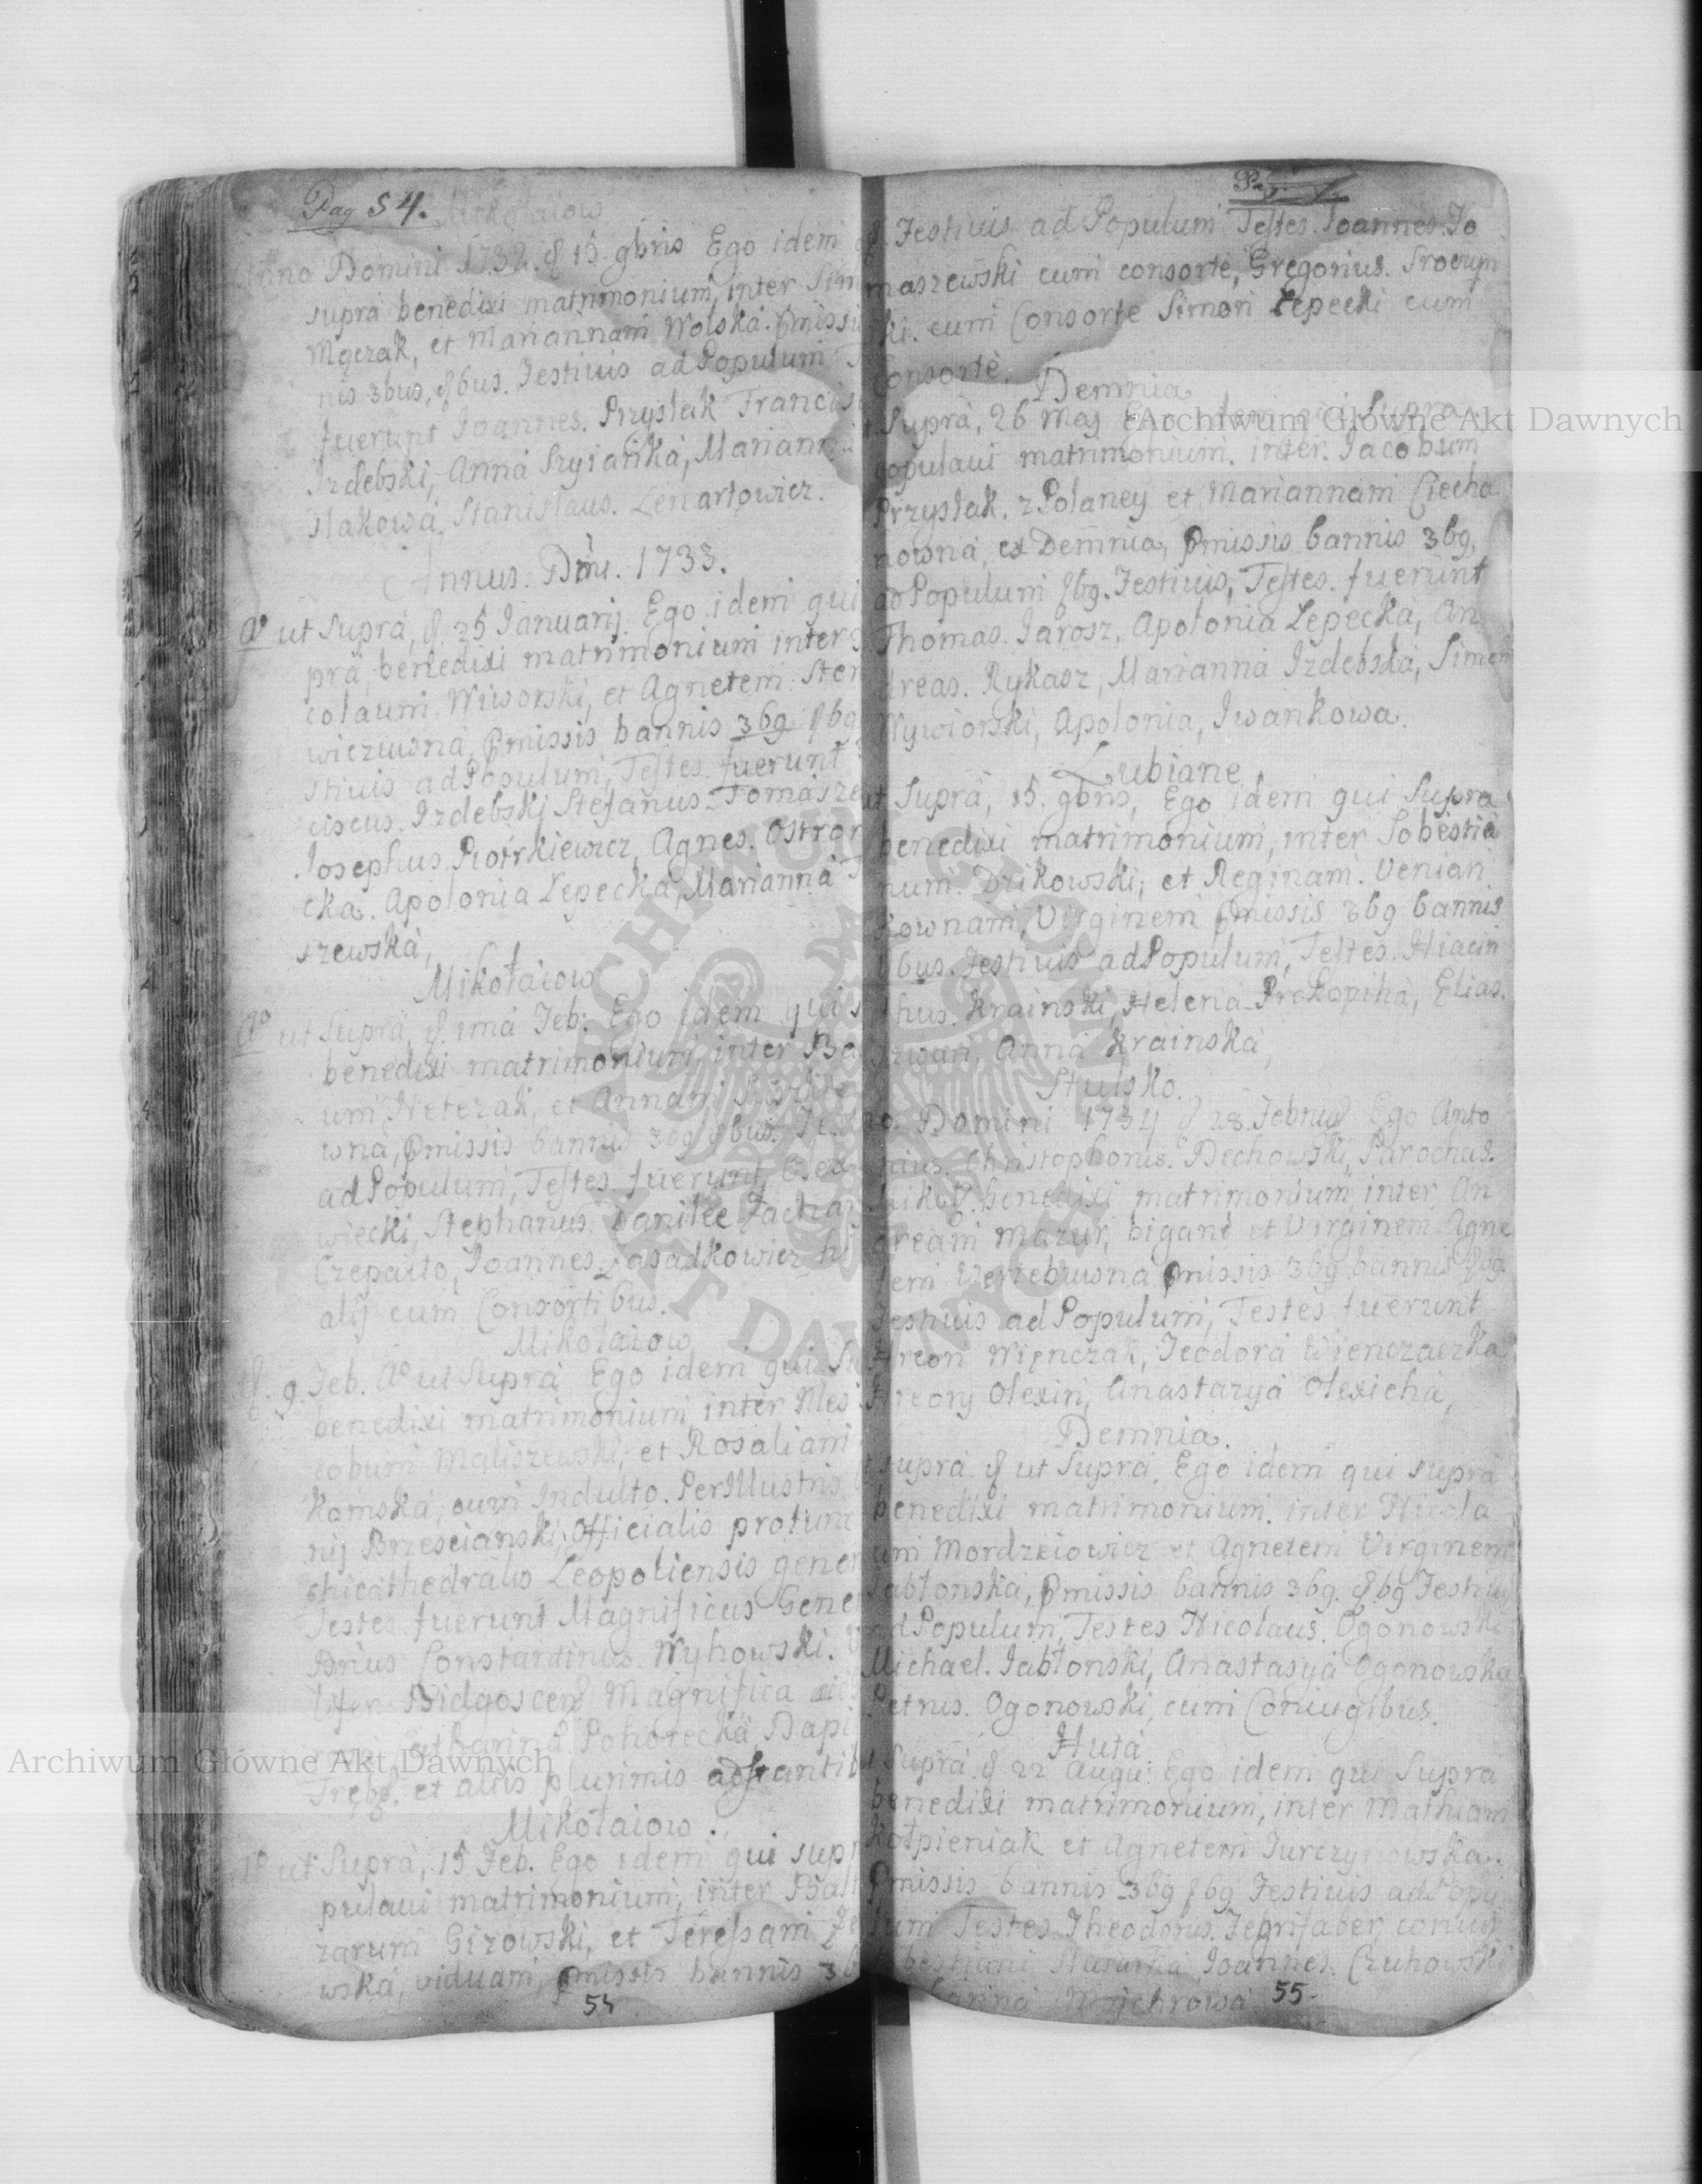 Pag 54. Mikołaiow
Anno Domini 1732. 15. gbris Ego idem
supra benedixi matrimonium, inter Sim
Męczak, et Mariannam Wolska. pmissi
nis 3bus, bus. Festiuis ad Populum
fuerunt Joannes. Przystak Francis
Izdebski, Anna Szyianka, Mariann
stakowa, Stanislaus. Lenartowicz.
Annus. Dni. 1733.
Aº ut Supra, 25 Januarij. Ego idem qui
pra, benedixi matrimonium inter
colaum Wiworski, et Agnetem Ster
wiczuwna, pmissis bannis 3bg
stiuis ad Populum, Testes fuerunt
ciscus. Izdebskj Stefanus Tomasze
Josephus Piotrkiewicz, Agnes. Ostron
cka. Apolonia Lepecka, Marianna
szewska,
Mikołaiow
Aº ut Supra, 1ma Feb: Ego idem qui s
benedixi matrimonium inter Ba
um Neteżak, et Annam
wna, pmissis bannis 3bg bus. Fe
ad Populum, Testes fuerunt,
wiecki, Stephanus Danilec Zacha
Czepaito, Joannes Zasadkowicz hi
alij cum Consortibus.
Mikołaiow
9. Feb. Aº ut Supra Ego idem qui Su
benedixi matrimonium inter
cobum Maliszewski, et Rosaliam
kamska, cum Indulto. PerIllustris
nij Brzescianski, Officialis protunc
chicathedralis Leopoliensis gener
Testes fuerunt Magnificus Gene
Dnus Constantinus Wyhowski.
Bidgoscen Magnifica
Pohorecka, Dapi
Tręb. et aliis plurimis adstantib
Mikołaiow.
ut Supra, 15 Feb. Ego idem qui supr
pulaui matrimonium, inter Balt
zarum Girowski, et Teressam
wska, viduam, pmissis bannis 3b
54
Pag.
Festiuis ad Populum Testes. Joannes To
maszewski cum consorte, Gregorius.
ki. cum Consorte Simon Lepecki cum
Consorte.
Demnia
Supra, 26 Maj Ego idem qui Supra
copulaui matrimonium. inter. Jacobum
Przystak. z Polaney et Mariannam Ciecha
nowna, ex Demnia, pmissis bannis 3bg,
ad Populum bg. Festiuis, Testes. fuerunt
Thomas. Jarosz, Apolonia Lepecka, An
dreas. Rykasz, Marianna Izdebska, Simon
Wywiorski, Apolonia, Iwankowa.
Lubiane
ut Supra, 15. gbris, Ego idem qui Supra
benedixi matrimonium, inter Sobestia
num. Dzikowski, et Reginam. Venian
kownam, Virginem pmissis 3bg bannis
bus. Festiuis ad Populum, Testes. Hiacin
thus. Krainski, Helena Prokopiha, Elias.
Iwan, Anna Krainska,
Stulsko.
no. Domini 1734 28. Februa Ego Anto
nius. Christophorus. Dechowski, Parochus.
Mikoł. benedixi matrimonium inter An
dream Mazur, bigane et Virginem Agne
tem pmissis 3bg bannis bg.
Festiuis ad Populum, Testes fuerunt
Hreon Więnczak, Teodora Wienczaczka
Hreory Olexin, Anastazya Olexicha,
Demnia.
supra ut Supra, Ego idem qui supra
benedixi matrimonium. inter Nicola
um Mordzeiowicz et Agnetem Virginem
Jabłonska, pmissis bannis 3bg. bg Festiu
ad Populum, Testes Nicolaus. Ogonowski
Michael. Jabłonski, Anastasya Ogonowska
Petrus. Ogonowski, cum Coniugibus.
Huta
Supra 22 Augu: Ego idem qui Supra
benedixi matrimonium, inter Mathiam
Kołpieniak et Agnetem Jurczynowska.
Pmissis bannis 3bg bg Festiuis ad Popu
lum Testes Theodorus. coniux
Joannes. Czuhowski
55.
Archiwum Główne Akt Dawnych
Archiwum Główne Akt Dawnych
ARCHIWUM GŁÓWNE
AKT DAWNYCH